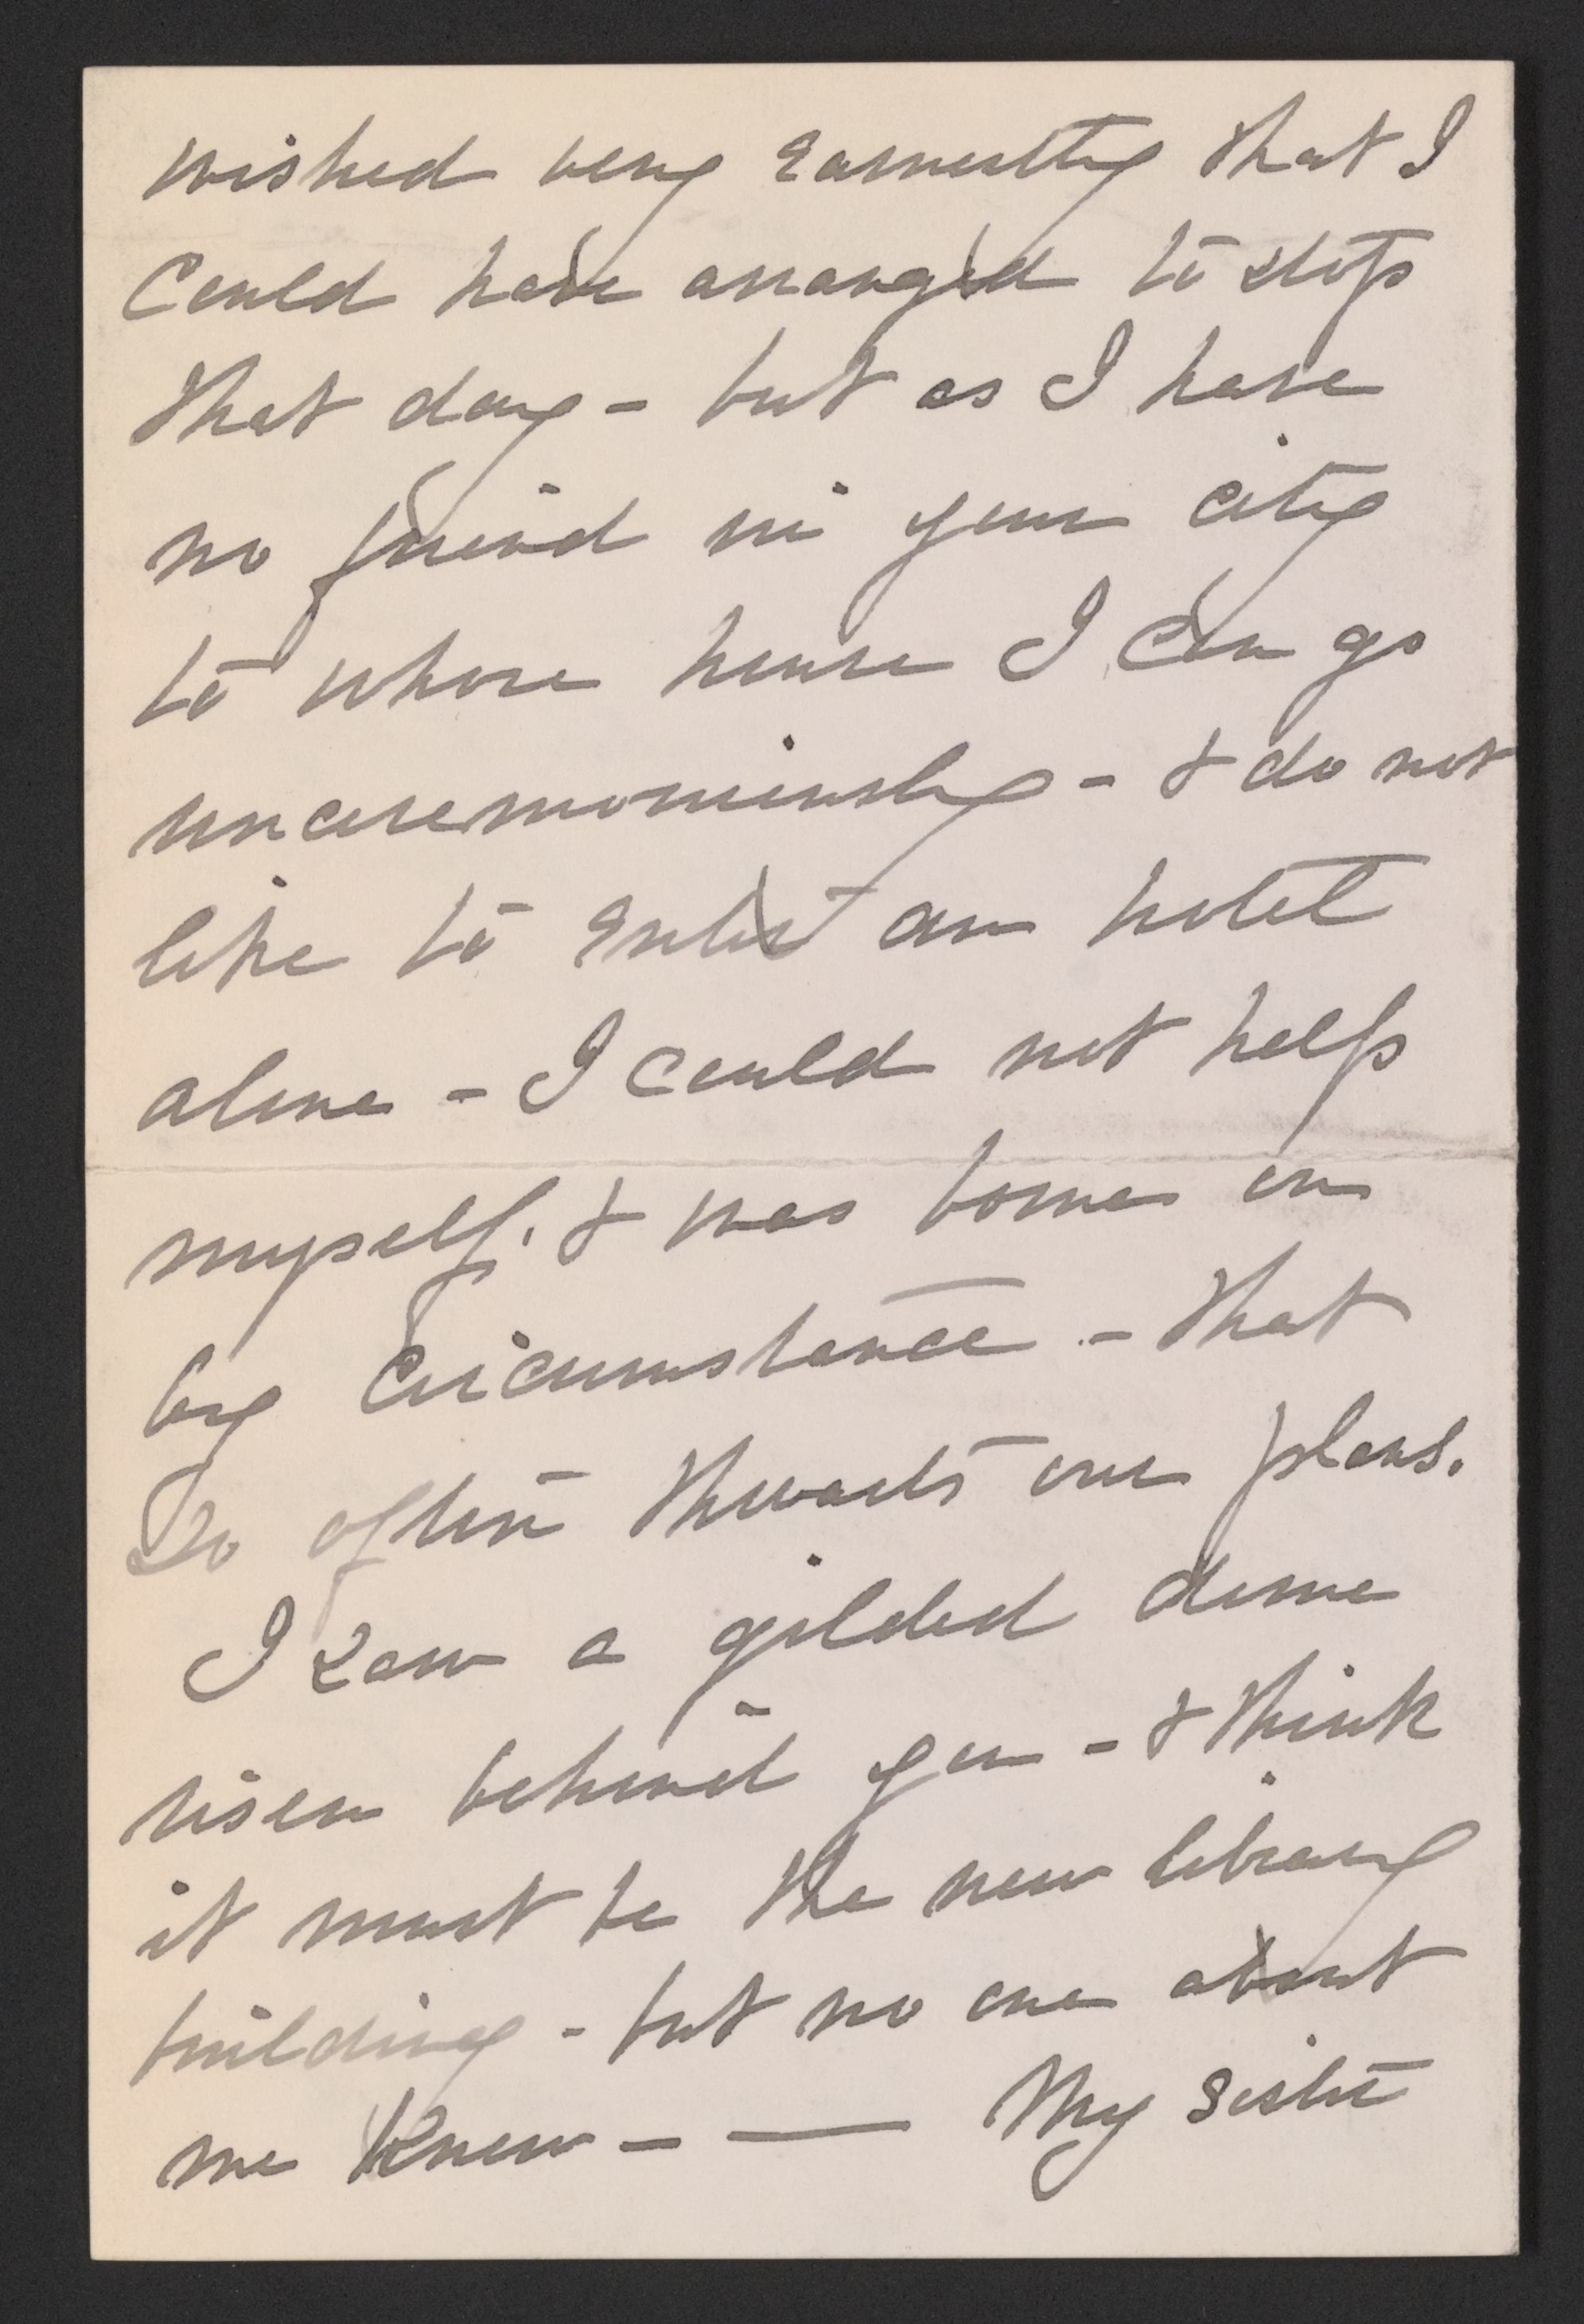 wished very earnestly that I
could have arranged to stop
that day - but as I have
no friend in your city
to whose house I can go
unceremoniously - & do not
like to enter an hotel
alone - I could not help
myself. & was borne on
by circumstance - that
so often thwarts our plans.
I saw a gilded dome
risen behind you - & think
it must be the new library
building - but no one about
me knew - — My sister